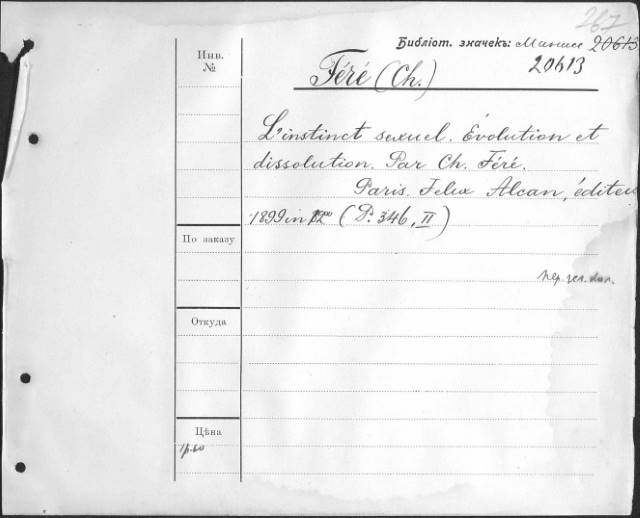 267
Библіот. значекъ: 20613
20613
Инв.
№
Féré (Ch.)
L'instinct sexuel. Évolution et
dissolution. Par Ch. Féré.
Paris. Felix Alcan, éditeu
1899 in 12 (P. 346, II)
По заказу
Откуда
Цѣна
1р.60